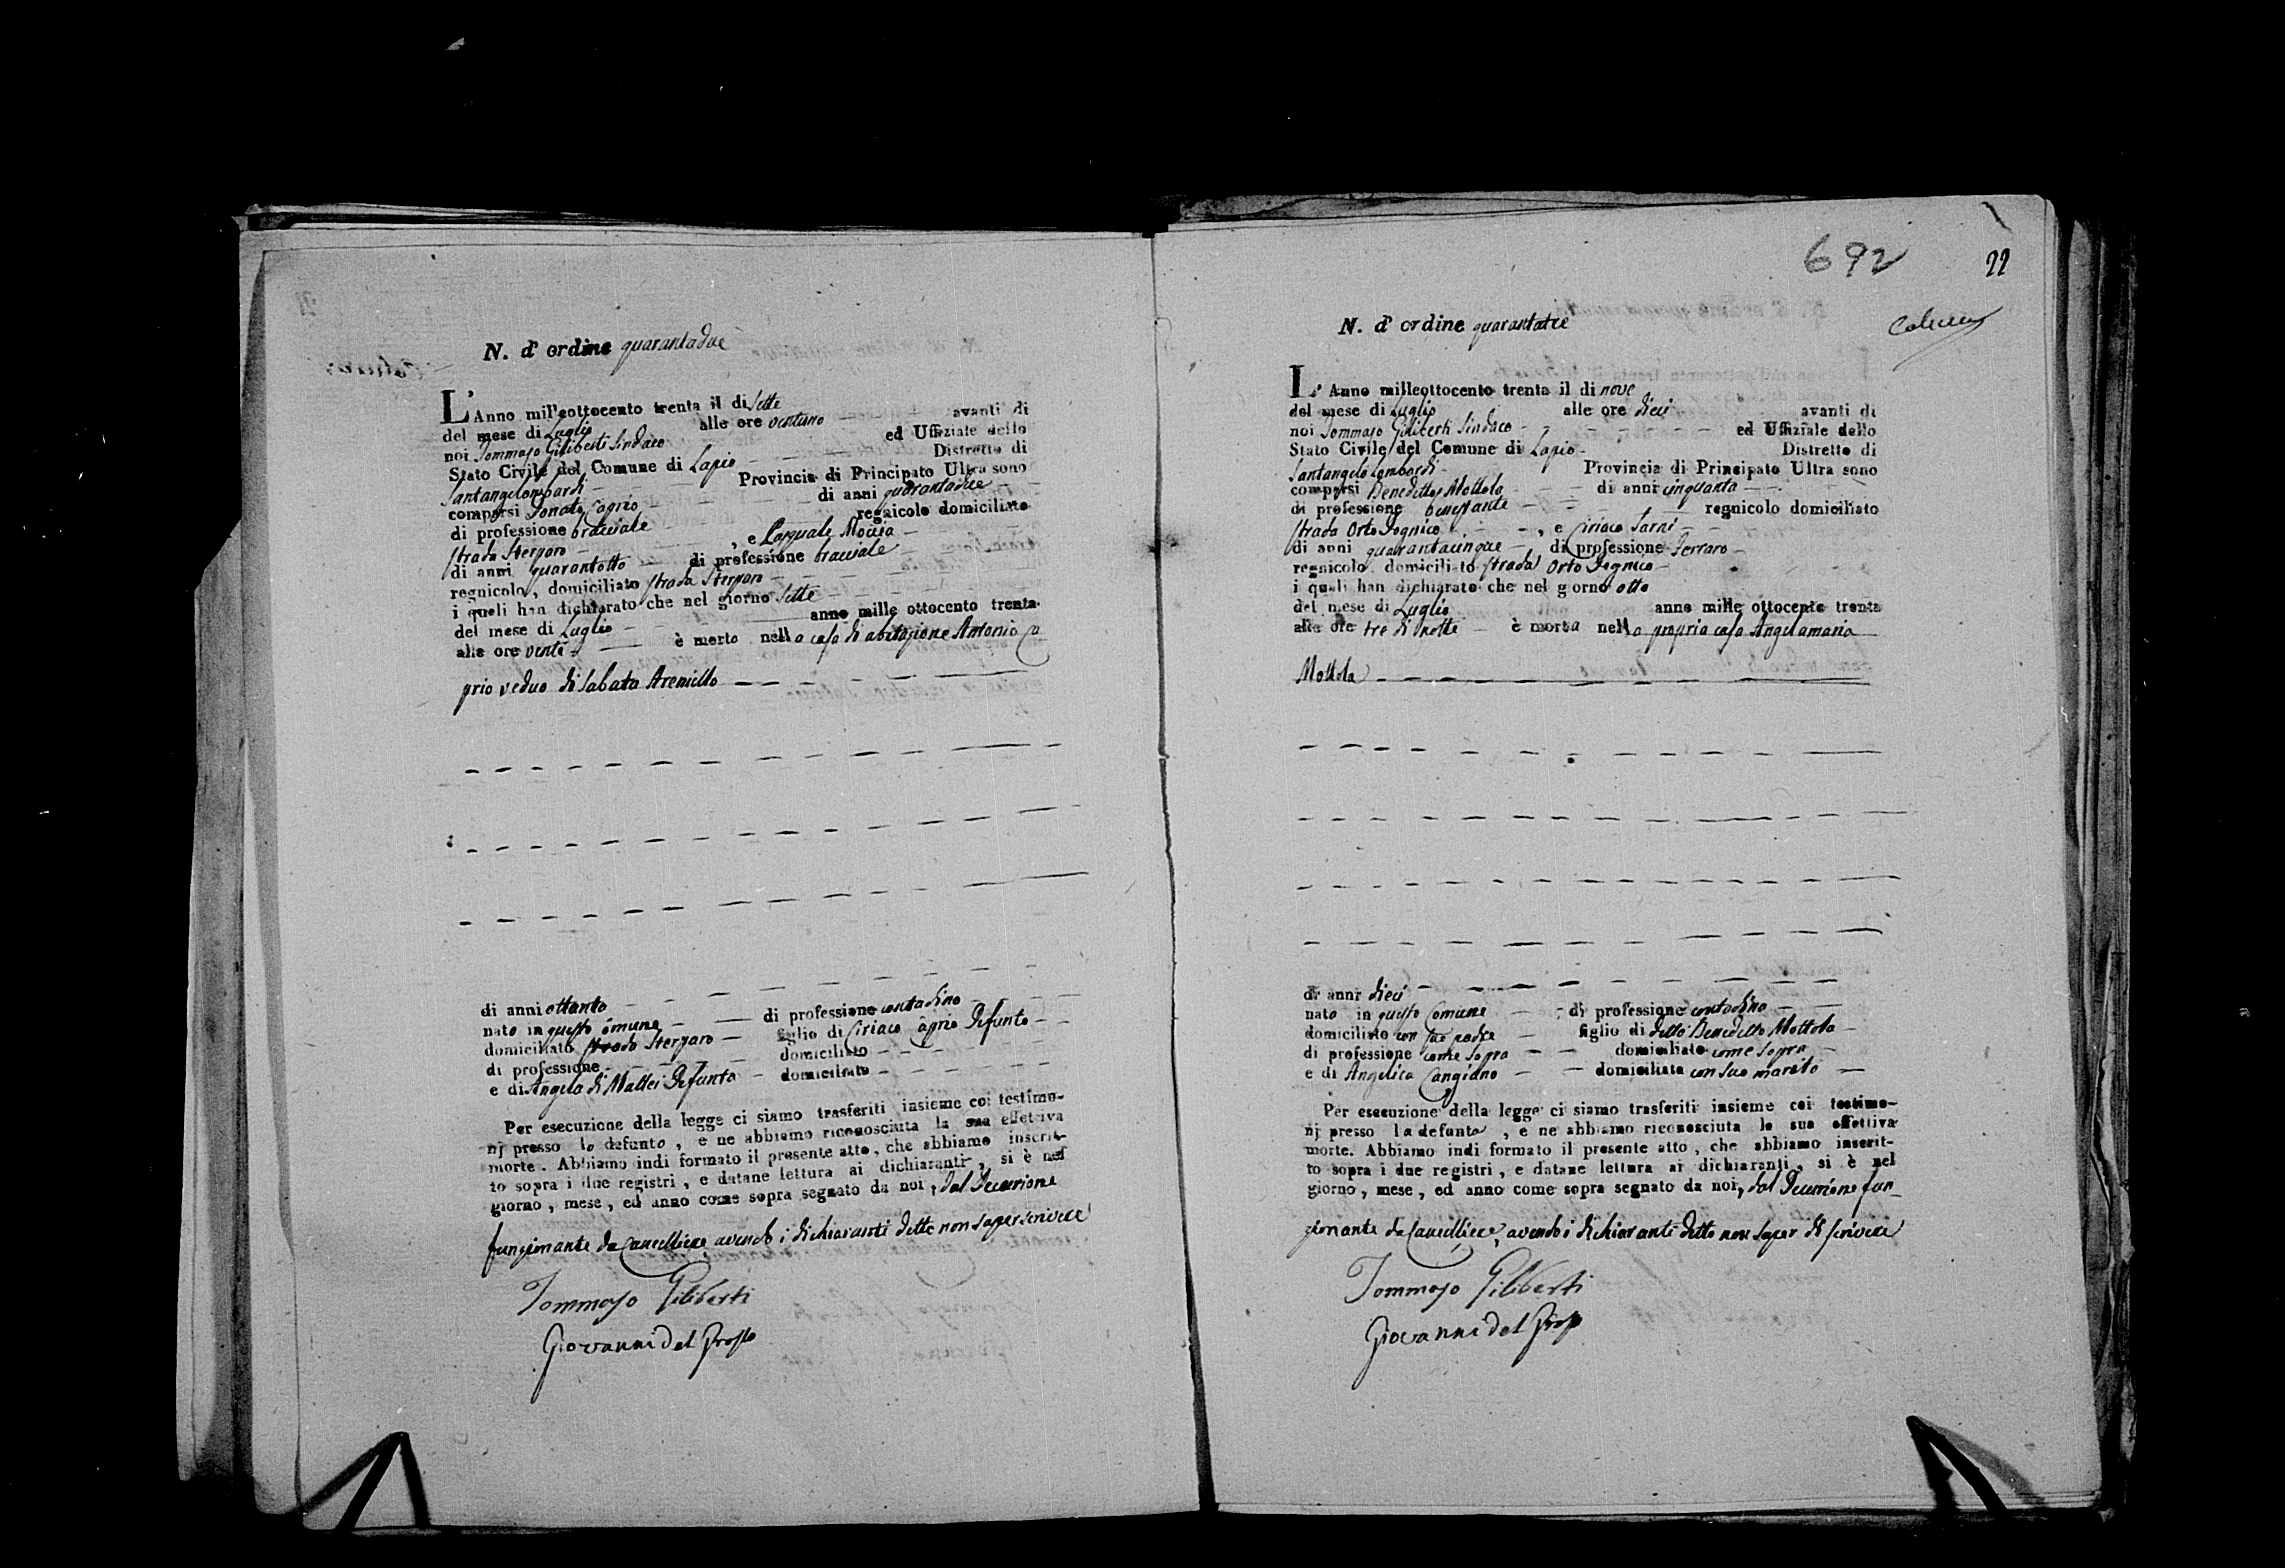 N. d' ordine quarantadue
L'Anno mill'eottocento trenta il dì Sette
del mese di Luglio alle ore ventuno avanti di
noi Tommaso Giliberti Sindaco ed Uffiziale dello
Stato Civile del Comune di Lapio Distretto di
Santangelombardi Provincia di Principato Ultra sono
comparsi Donato Caprio di anni quarantadue
di professione bracciale regnicolo domiciliato
strada Sterparo, e Pasquale Moccia
di anni quarantotto di professione bracciale
regnicolo, domiciliato strada Sterparo
i quali han dichiarato che nel giorno Sette
del mese di Luglio anno mille ottocento trenta
alle ore venti è morto nella casa di abitazione Antonio Ca
prio veduo di Sabata Aremillo
di anni ottanta di professione contadino
nato in questo Comune figlio di Ciriaco Caprio Defunto
domiciliato strada Sterparo domiciliato
di professione
e di Angela di Mattei Defunta domiciliato
Per esecuzione della legge ci siamo trasferiti insieme coi testimo-
nj presso lo defunto, e ne abbiamo riconosciuta la sua effettiva
morte. Abbiamo indi formato il presente atto, che abbiamo inscrit-
to sopra i due registri, e datane lettura ai dichiaranti, si è nel
giorno, mese, ed anno come sopra segnato da noi, dal Decurione
funzionante da Cancelliere avendo i dichiaranti detto non saper scrivere
Tommaso Giliberti
Giovanni del Grosso
692 22
N. d' ordine quarantatre
L' Anno milleottocento trenta il di nove
del mese di Luglio alle ore dieci avanti di
noi Tommaso Giliberti Sindaco ed Uffiziale dello
Stato Civile del Comune di Lapio Distretto di
Santangelo Lombardi Provincia di Principato Ultra sono
comparsi Benedetto Mottola di anni cinquanta
di professione benestante regnicolo domiciliato
strada Orto Dognico, e Ciriaco Sarni
di anni quarantacinque di professione Ferraro
regnicolo domiciliato strada Orto Dognico
i quali han dichiarato che nel giorno otto
del mese di Luglio anno mille ottocento trenta
alle ore tre di notte è morta nella propria casa Angelamaria
Mottola
di anni dieci
nato in questo Comune di professione contadino
domiciliato con suo padre figlio di detto Benedetto Mottola
di professione come sopra domiciliato come sopra
e di Angelica Cangiano domiciliata con suo marito
Per esecuzione della legge ci siamo trasferiti insieme coi testimo-
nj presso la defunta, e ne abbiamo riconosciuta la sua effettiva
morte. Abbiamo indi formato il presente atto, che abbiamo inscrit-
to sopra i due registri, e datane lettura ai dichiaranti, si è nel
giorno, mese, ed anno come sopra segnato da noi, dal Decurione fun-
zionante da Cancelliere, avendo i dichiaranti detto non saper di scrivere
Tommaso Giliberti
Giovanni del Grosso